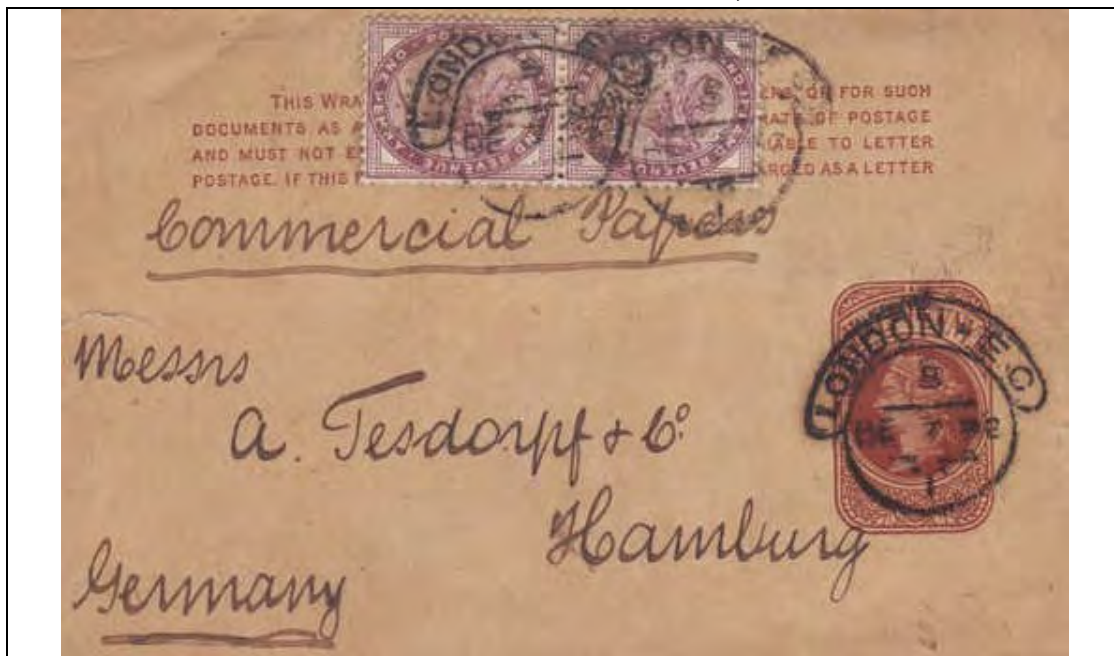 LONDON
LONDON
THIS WRA ERS, OR FOR SUCH
DOCUMENTS AS A RATE OF POSTAGE
AND MUST NOT E IABLE TO LETTER
POSTAGE. IF THIS ARGED AS A LETTER
Commercial Papers
LONDON · E.C
8
DE 7 92
Messrs
A. Tesdorpf & Co.
Hamburg
Germany